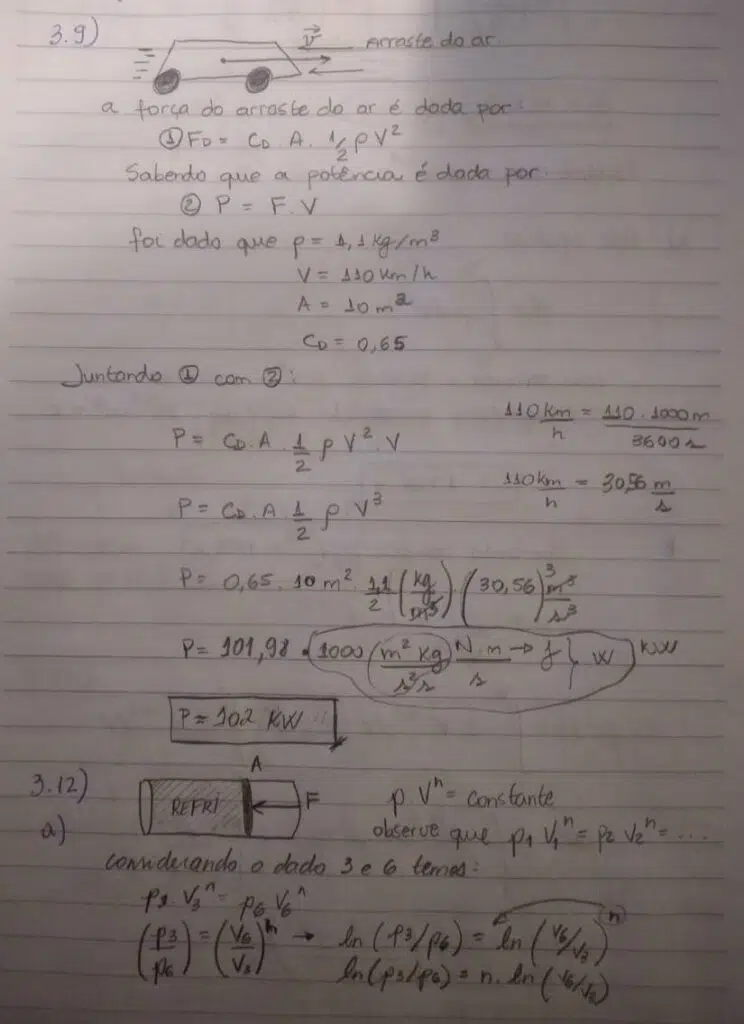 3.9)
v⃗ Arraste do ar.
a força do arraste do ar é dada por:
① F_D = C_D . A . 1/2 ρ V²
Sabendo que a potência é dada por:
② P = F . V
foi dado que ρ = 1,1 kg/m³
V = 110 km/h
A = 10 m²
C_D = 0,65
Juntando ① com ②:
110 km/h = 110 . 1000 m / 3600 s
P = C_D . A . 1/2 ρ V² . V
110 km/h = 30,56 m/s
P = C_D . A 1/2 ρ . V³
P = 0,65 . 10 m² . 1,1/2 (kg/m³) . (30,56)³ m³/s³
P = 101,98 . 1000 (m² kg / s² s) N.m/s → J } W KW
P = 102 KW
3.12) A
REFRI F p . Vⁿ = constante
a) observe que p1 V1ⁿ = p2 V2ⁿ = ...
considerando o dado 3 e 6 temos:
V3ⁿ = p6 V6ⁿ
(p3/p6) = (V6/V3)ⁿ → ln (p3/p6) = ln (V6/V3)ⁿ
ln (p3/p6) = n . ln (V6/V3)